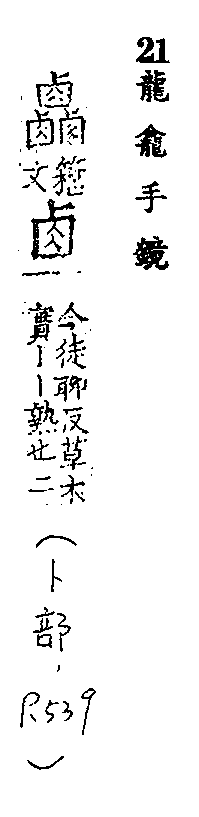 21 龍龕手鏡
𠧪
籀文
卤
今徒聊反草木
實丨丨熟也二
(卜部,P.539)